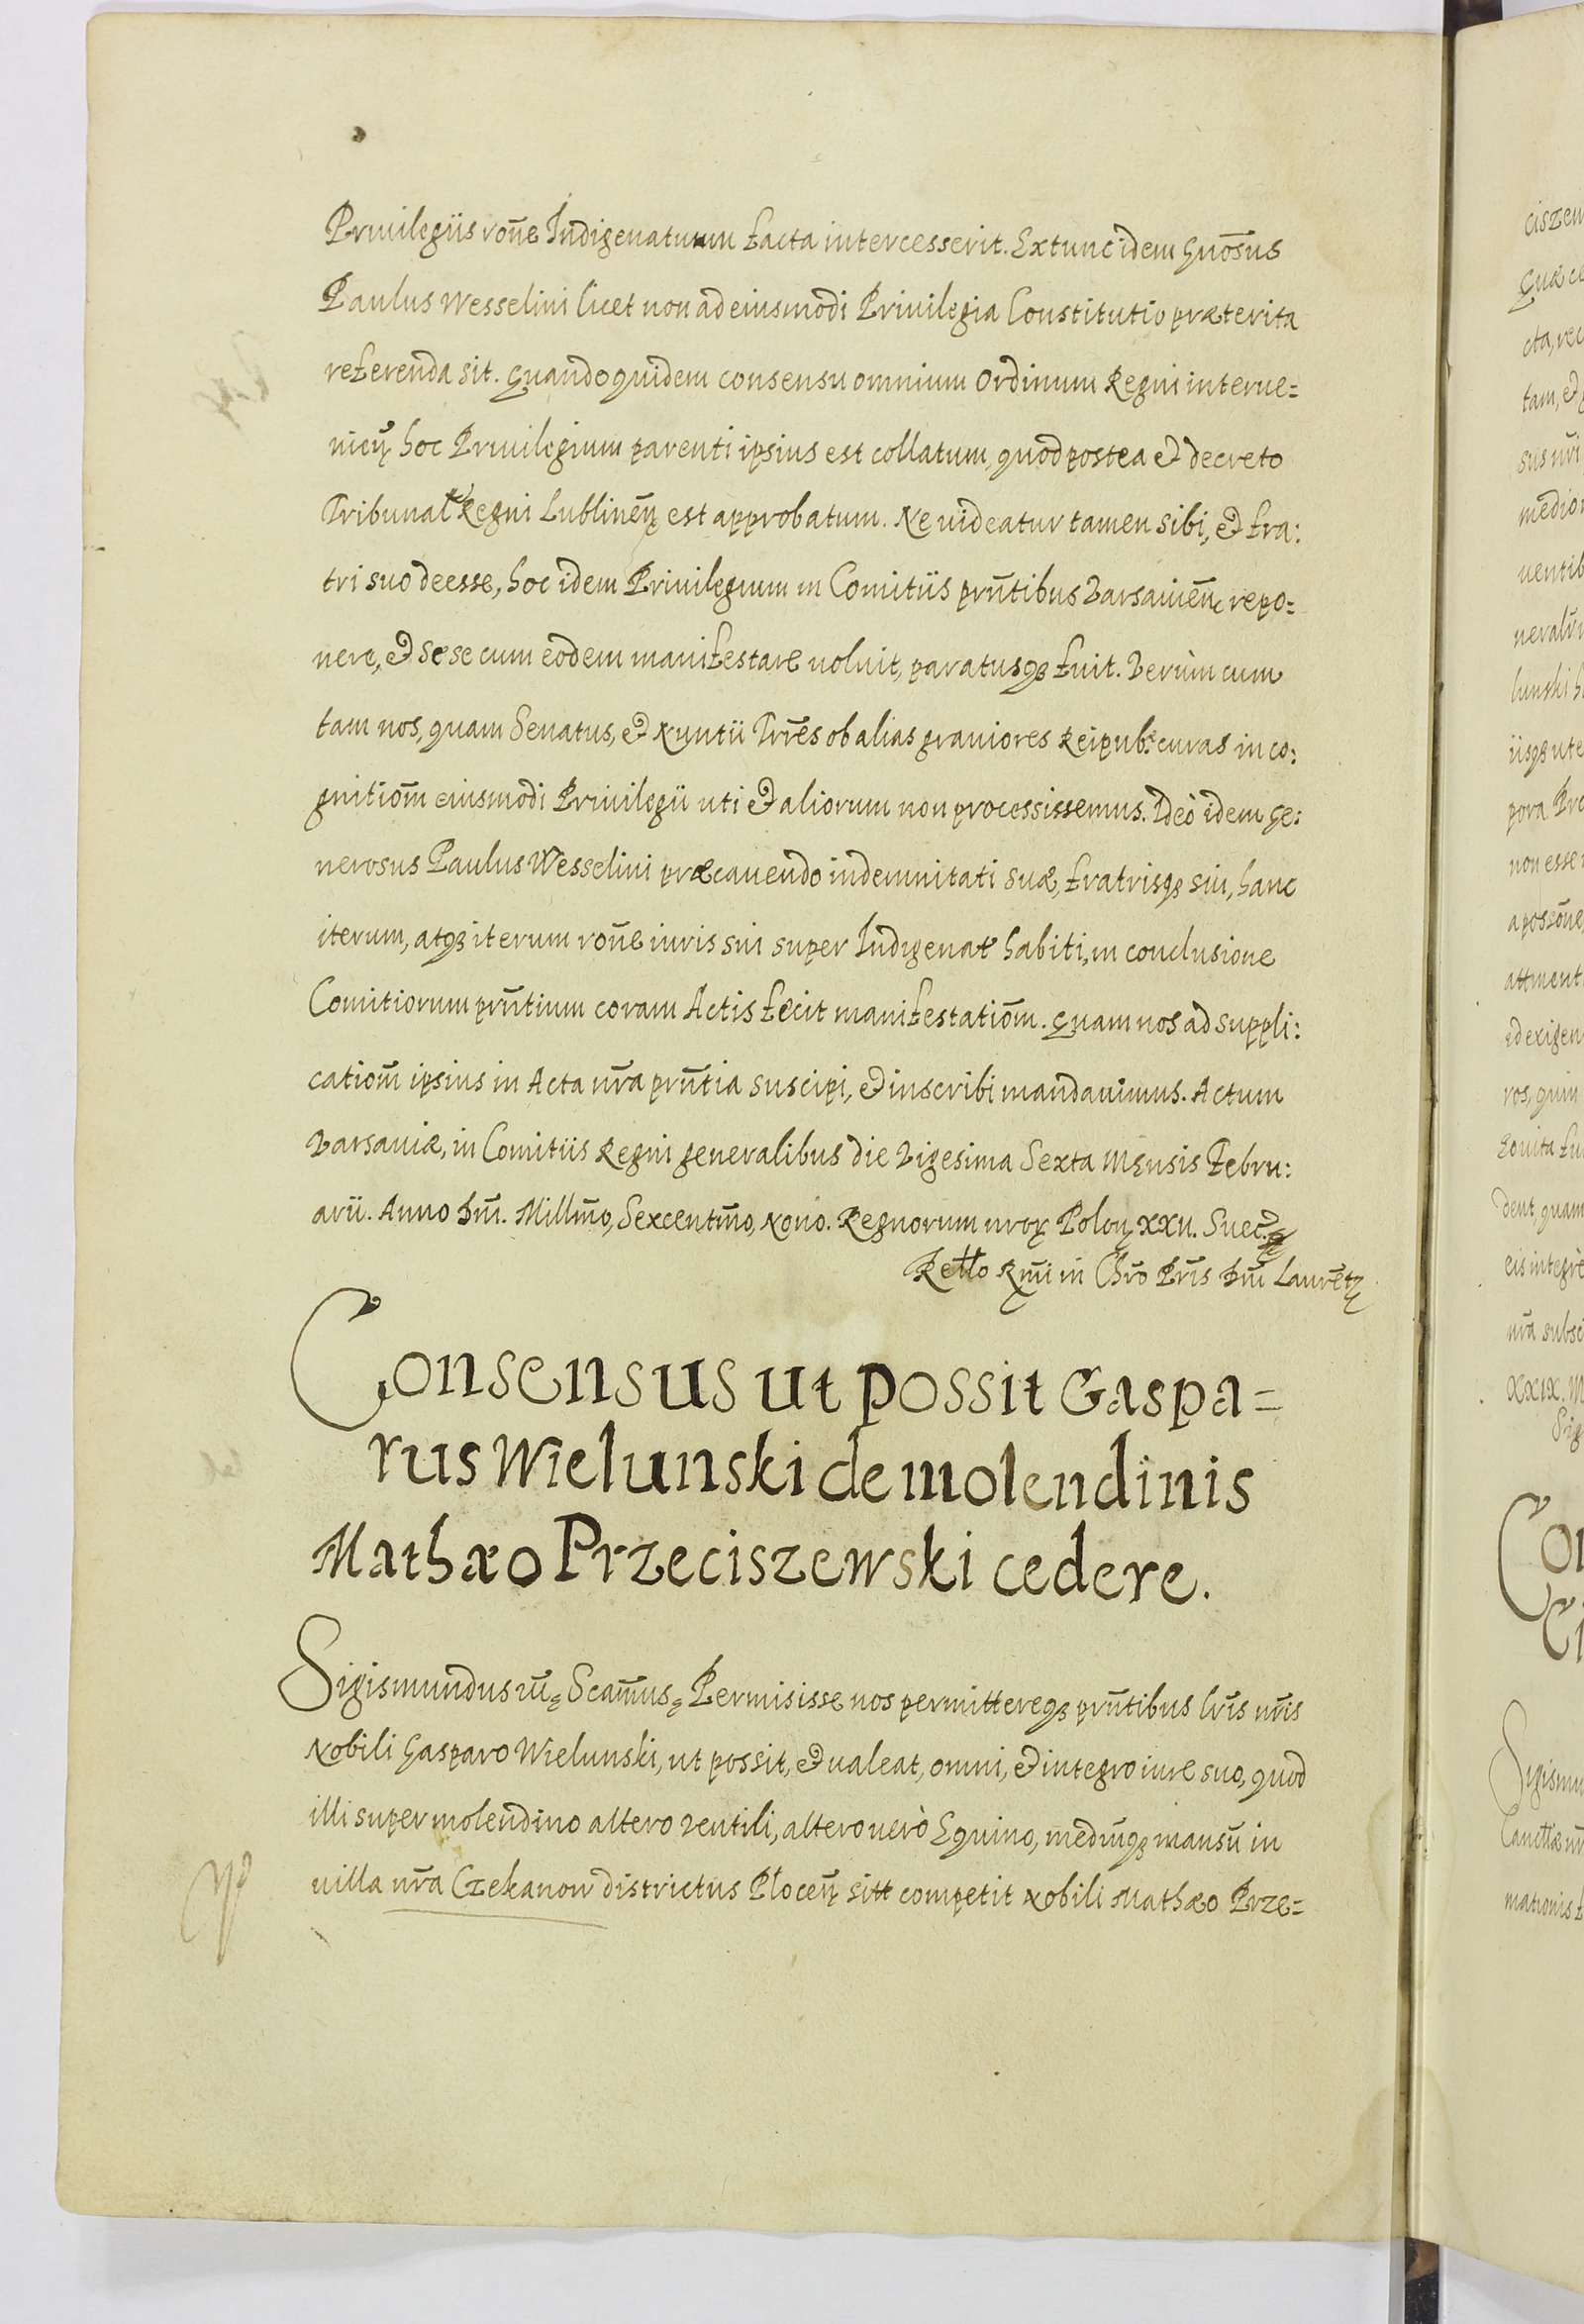 Priuilegiis rõne Indigenatuum facta intercesserit. Extunc idem Gnõsus
Paulus Wesselini licet non ad eiusmodi Priuilegia Constitutio præterita
referenda sit. Quandoquidem consensu omnium Ordinum Regni interue=
nieñ hoc Priuilegium parenti ipsius est collatum, quod postea et decreto
Tribunal Regni Lublineñ est approbatum. Ne uideatur tamen sibi, et fra:
tri suo deesse, hoc idem Priuilegium in Comitiis prñtibus Varsauieñ repo=
nere, et sese cum eodem manifestare uoluit, paratusq; fuit. Verùm cum
tam nos, quam Senatus, et Nuntii Trr̃es ob alias grauiores Reipub: curas in co:
gnitiom̃ eiusmodi Priuilegii uti et aliorum non processissemus. Ideò idem Ge:
nerosus Paulus Wesselini præcauendo indemnitati suæ, fratrisq; sui, hanc
iterum, atq; iterum rõne iuris sui super Indigenat habiti, in conclusione
Comitiorum prñtium coram Actis fecit manifestatiom̃. Quam nos ad suppli:
catiom̃ ipsius in Acta nr̃a prñtia suscipi, et inscribi mandauimus. Actum
Varsauiæ, in Comitiis Regni generalibus die Vigesima Sexta Mensis Febru:
arii. Anno Dm̃. Millm̃o, Sexcentm̃o, Nono. Regnorum nrorꝝ Poloñ XXII. Suec.
Rello Rm̃i in Chr̃o Pr̃is Dm̃ Laurẽt
Consensus ut possit Gaspa=
rus Wielunski de molendinis
Mathæo Przeciszewski cedere.
Sigismundus III. Scam̃us. Permisisse nos permittereq; prñtibus lr̃is nr̃is
Nobili Gasparo Wielunski, ut possit, et ualeat, omni, et integro iure suo, quod
illi super molendino altero Ventili, altero uerò Equino, mediũq; mansũ in
uilla nr̃a Czekanow districtus Ploceñ sitt competit Nobili Mathæo Prze=